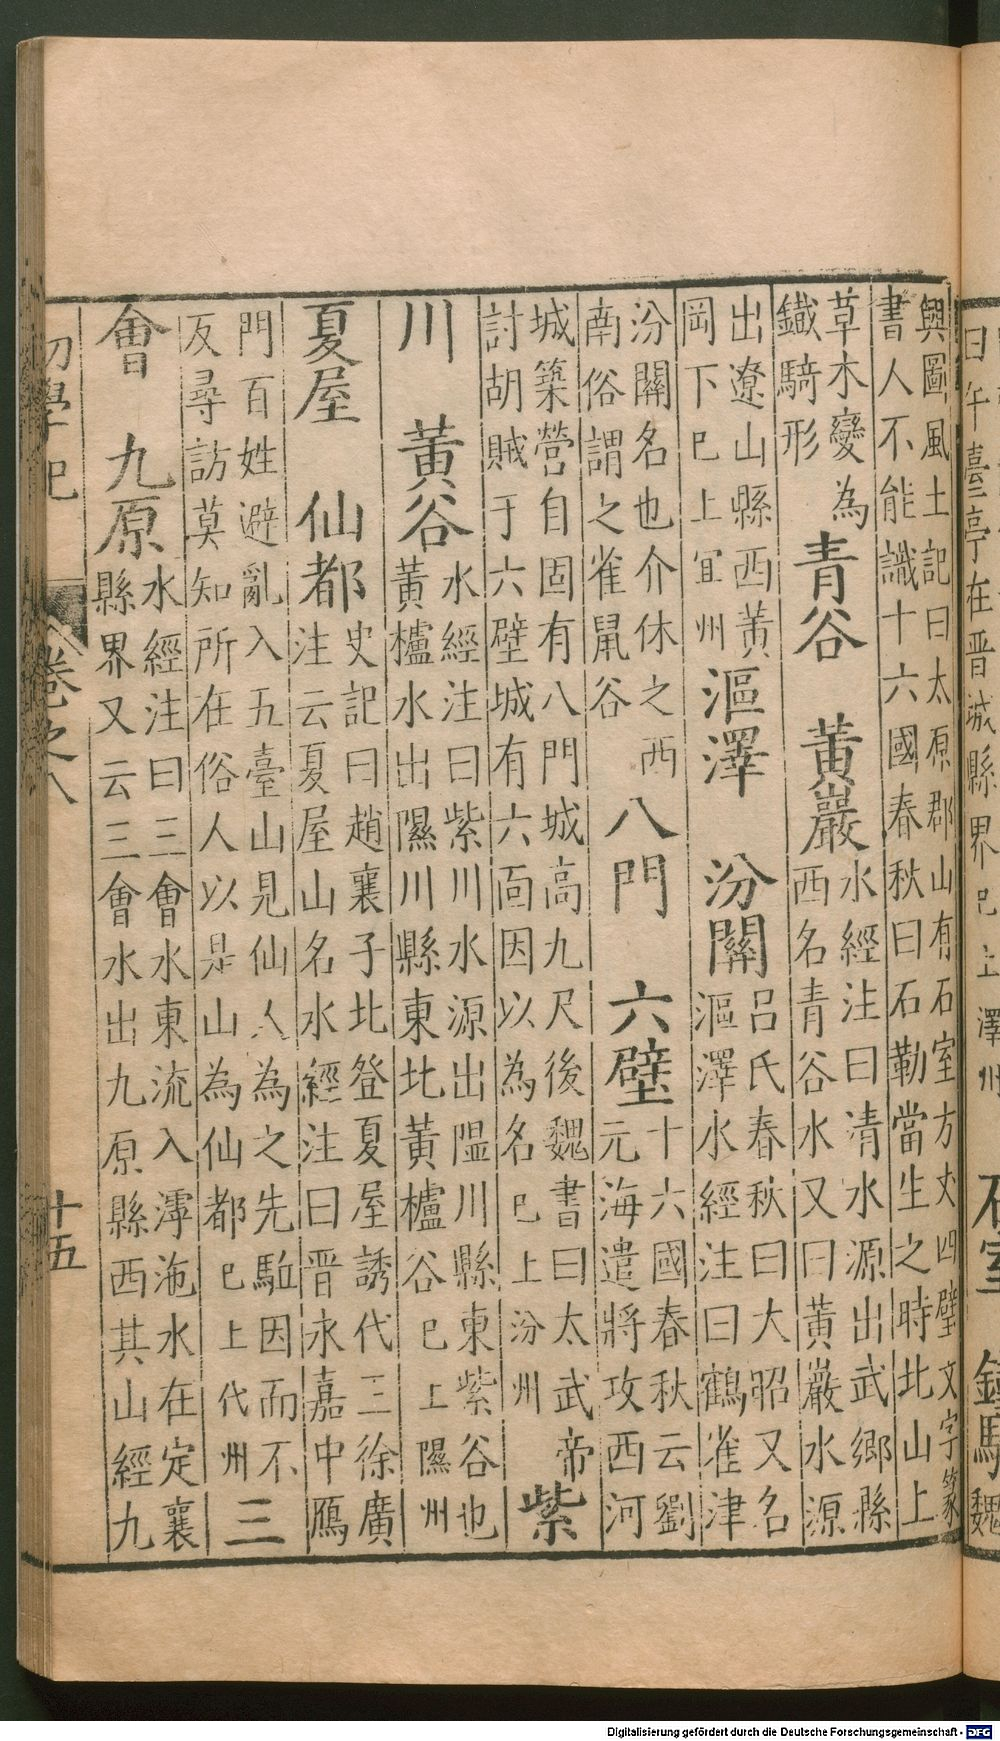 曰午臺亭在晉城縣界巳上澤州 石室 鐵騎魏
輿圖風土記曰太原郡山有石室方丈四壁文字篆
書人不能識十六國春秋曰石勒當生之時北山上
草木變為
鐵騎形
青谷 黃巖
水經注曰清水源出武鄉縣
西名青谷水又曰黃巖水源
出遼山縣西黃
岡下巳上宜州
漚澤 汾關
呂氏春秋曰大昭又名
漚澤水經注曰鶴雀津
汾關名也介休之西
南俗謂之雀鼠谷
八門 六壁
十六國春秋云劉
元海遣將攻西河
城築營自固有八門城高九尺後魏書曰太武帝
討胡賊于六壁城有六面因以為名巳上汾州
紫
川 黃谷
水經注曰紫川水源出隰川縣東紫谷也
黃櫨水出隰川縣東北黃櫨谷巳上隰州
夏屋 仙都
史記曰趙襄子北登夏屋誘代三徐廣
注云夏屋山名水經注曰晉永嘉中鴈
門百姓避亂入五臺山見仙人為之先駈因而不
反尋訪莫知所在俗人以是山為仙都巳上代州
三
會 九原
水經注曰三會水東流入滹沲水在定襄
縣界又云三會水出九原縣西其山經九
初學記 卷之八 十五
Digitalisierung gefördert durch die Deutsche Forschungsgemeinschaft - DFG